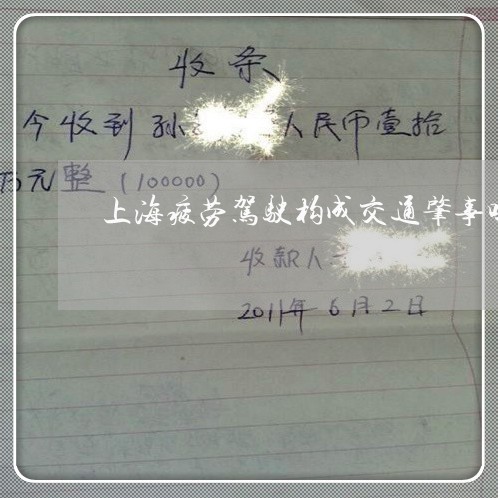 收条
今收到孙 人民币壹拾
万元整(100000)
上海疲劳驾驶构成交通肇事
收款人
2011年6月2日